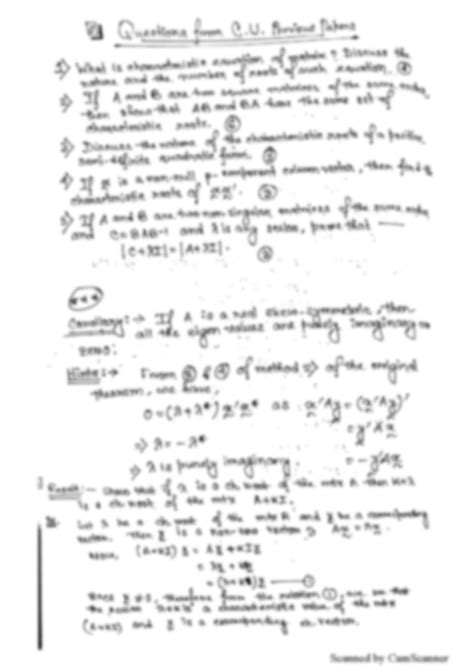 Questions from C.U. Previous Papers
1) What is characteristic equation of matrix? Discuss the
nature and the number of roots of such equation. (4)
2) If A and B are two square matrices of the same order,
then show that AB and BA have the same set of
characteristic roots.
3) Discuss the nature of the characteristic roots of a positive
semi-definite quadratic form.
4) If x is a non-null p-component column vector, then find
characteristic roots of xx'.
5) If A and B are two non-singular matrices of the same order
and C = BAB⁻¹ and λ is any scalar, prove that —
|C+λI| = |A+λI|.
***
Corollary:→ If A is a real skew-symmetric, then
all the eigen-values are purely imaginary or
zero.
Hints:→ From of method of the original
theorem, we have,
0 = (λ+λ*) x'x* as x'Ay = (x'Ay)'
= y'A'x
⇒ λ = -λ*
⇒ λ is purely imaginary. = -y'Ax
Result:- Show that if λ is a ch. root of the mtx A then
is a ch. root of the mtx A+KI.
Let λ be a ch. root of the mtx A and x be a corresponding
vector. Then x is a non-zero vector Ax = λx.
Now, (A+KI) x = Ax + KIx
= λx + Kx
= (λ+K)x —— (1)
Since x ≠ 0, therefore from the relation (1), we see that
the scalar λ+K is a characteristic value of the mtx
(A+KI) and x is a corresponding ch. vector.
Scanned by CamScanner